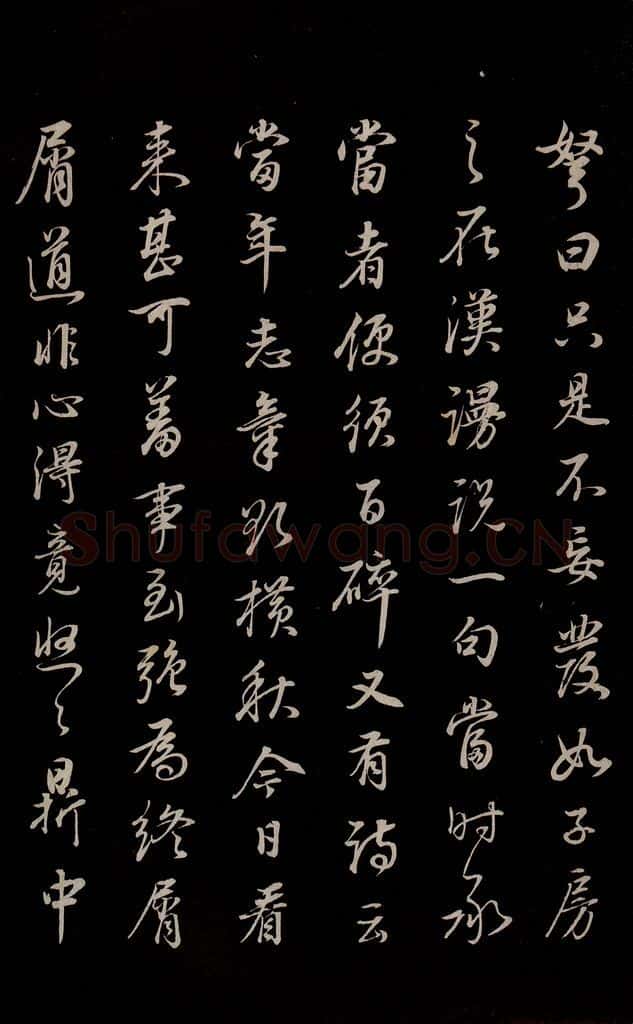 弩曰只是不妄發如子房
之在漢謾說一句當時承
當者便須百碎又有詩云
當年志氣欲橫秋今日看
來甚可羞事到強為終屑
屑道非心得竟悠々鼎中
Shufawang.CN